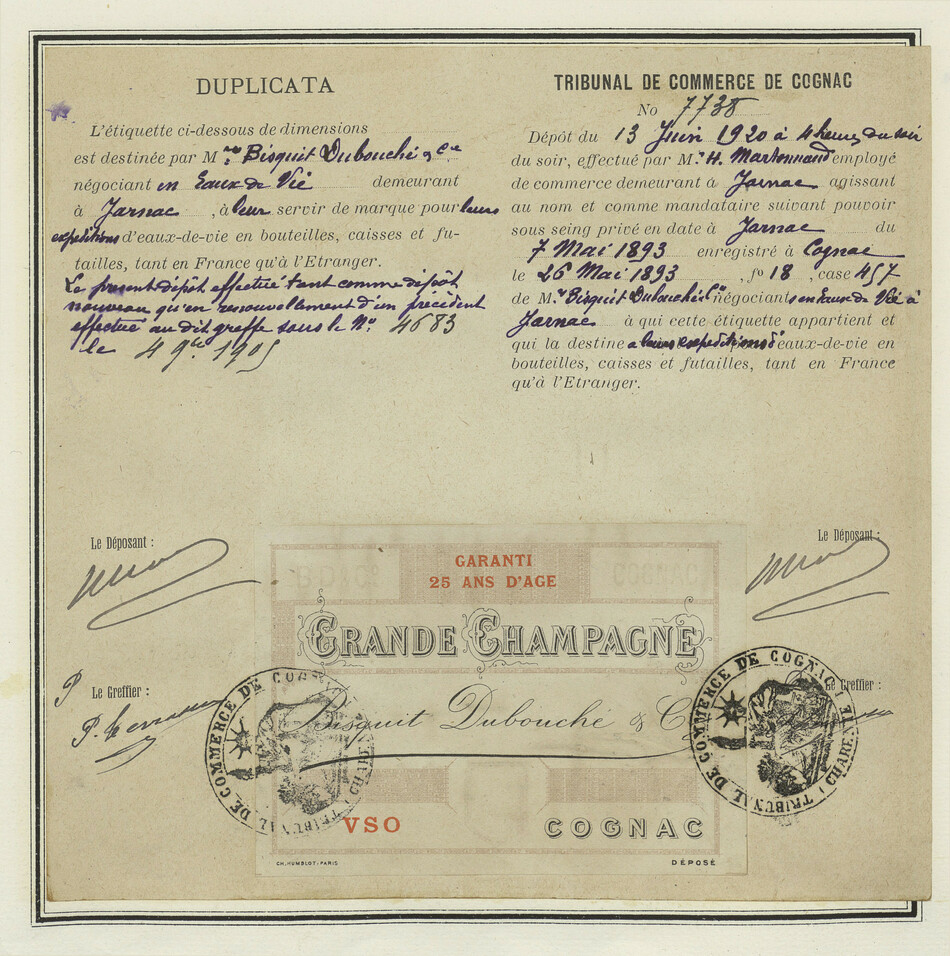 DUPLICATA
L'étiquette ci-dessous de dimensions
est destinée par Mrs Bisquit Dubouché & Cie
négociant en Eaux de Vie demeurant
à Jarnac, à leur servir de marque pour leurs
expéditions d'eaux-de-vie en bouteilles, caisses et fu-
tailles, tant en France qu'à l'Etranger.
Le présent dépôt effectué tant comme dépôt
nouveau qu'en renouvellement d'un précédent
effectué au dit greffe sous le No. 4683
le 4 9bre 1905
Le Déposant :
Le Greffier :
TRIBUNAL DE COMMERCE DE COGNAC
No 7738
Dépôt du 13 Juin 1920 à 4 heures du soir
du soir, effectué par Mr. H. employé
de commerce demeurant à Jarnac agissant
au nom et comme mandataire suivant pouvoir
sous seing privé en date à Jarnac du
7 Mai 1893 enregistré à Cognac
le 26 Mai 1893, fo 18, case 457
de Mrs Bisquit Dubouché & Cie négociants en Eaux de Vie à
Jarnac à qui cette étiquette appartient et
qui la destine à leurs expéditions d'eaux-de-vie en
bouteilles, caisses et futailles, tant en France
qu'à l'Etranger.
Le Déposant :
Le Greffier :
GARANTI
25 ANS D'AGE
COGNAC
GRANDE CHAMPAGNE
Bisquit Dubouché & Co
VSO
COGNAC
CH. HUMBLOT-PARIS
DÉPOSÉ
TRIBUNAL DE COMMERCE DE COGNAC
TRIBUNAL DE COMMERCE DE COGNAC (CHARENTE)